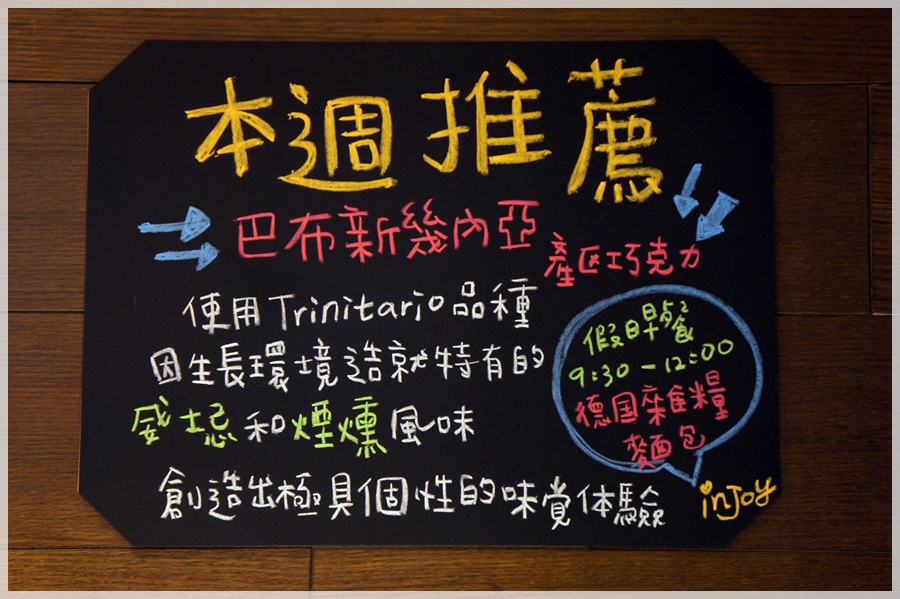 本週推薦
巴布新幾內亞
產區巧克力
使用Trinitario品種
因生長環境造就特有的
威士忌和煙燻風味
創造出極具個性的味覚体驗
假日早餐
9:30-12:00
德国雜糧
麵包
injoy